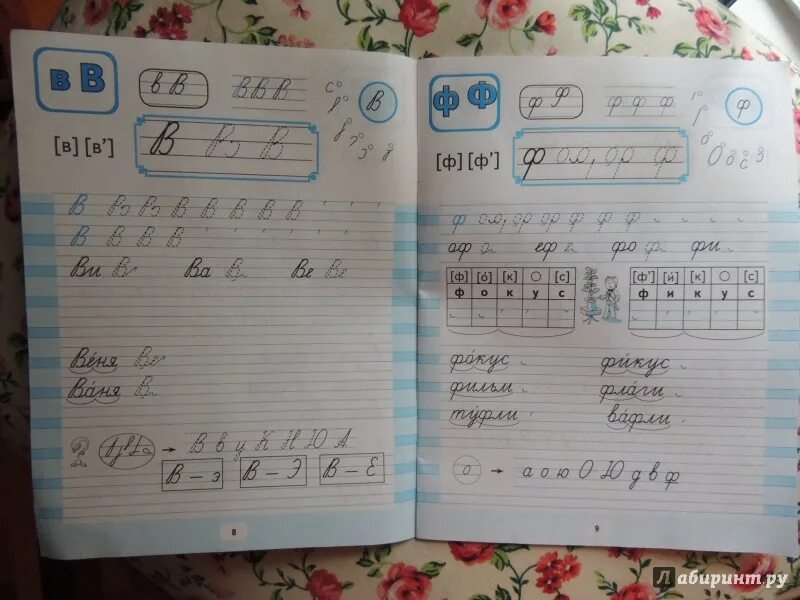 в В
в В
В В В
В
[в] [в’]
В В
В
В
Ви В Ва В Ве Ве
Ве́ня Ве
Ва́ня В
→ В в у К Н Ю А
В – э В – Э В – Е
8
ф Ф
ф Ф
ф ф ф
ф
[ф] [ф’]
ф
ф ф ф ф
оф о еф фо ф фи
[ф] [о́] [к] ○ [с]
ф о к у с
[ф’] [и́] [к] ○ [с]
ф и к у с
фо́кус фи́кус
фильм фла́ги
ту́фли ва́фли
о → а о ю О Ю д в ф
9
Лабиринт.ру